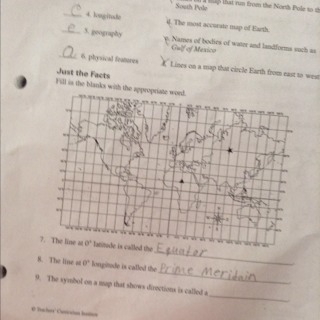 map that run from the North Pole to th
South Pole
C 4. longitude
d. The most accurate map of Earth.
e 5. geography
e. Names of bodies of water and landforms such as
Gulf of Mexico
a 6. physical features
Lines on a map that circle Earth from east to west
Just the Facts
Fill in the blanks with the appropriate word.
7. The line at 0° latitude is called the Equator
8. The line at 0° longitude is called the Prime Meridain
9. The symbol on a map that shows directions is called a
© Teachers' Curriculum Institute